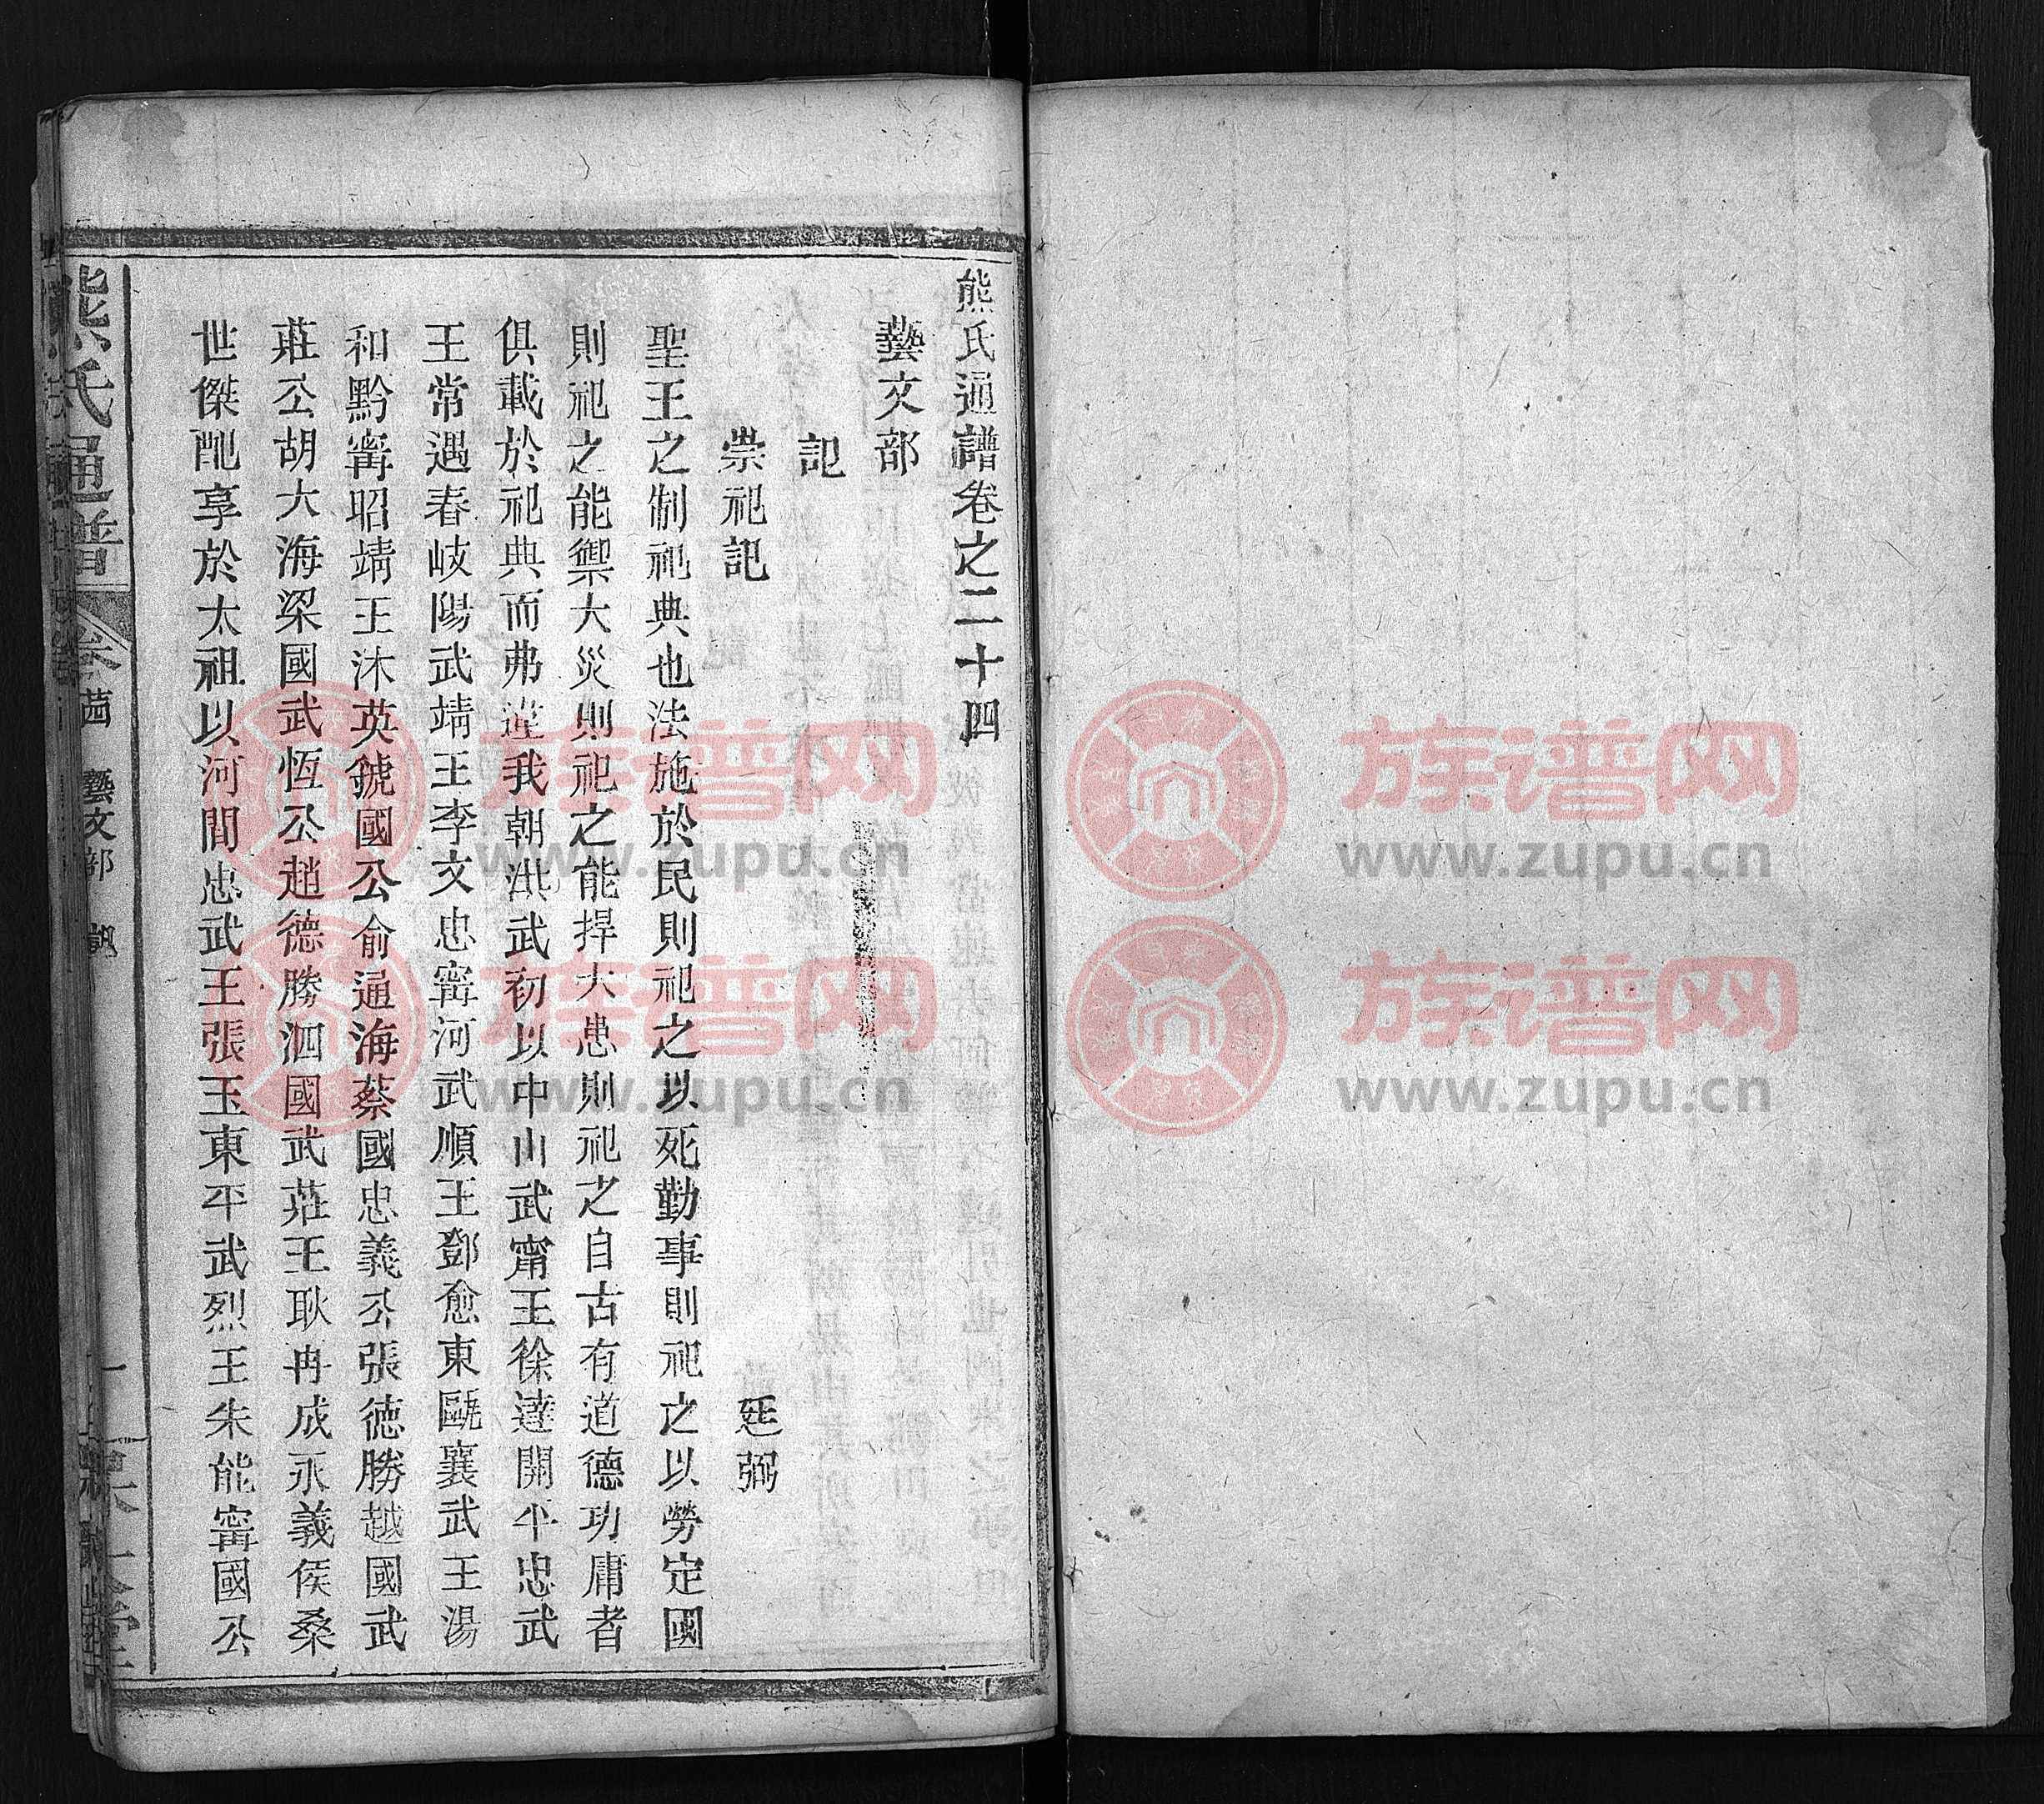 熊氏通譜卷之二十四
藝文部
記
崇祀記
廷弼
聖王之制祀典也法施於民則祀之以死勤事則祀之以勞定國
則祀之能禦大災則祀之能捍大患則祀之自古有道德功庸者
俱載於祀典而弗違我朝洪武初以中山武甯王徐達開平忠武
王常遇春岐陽武靖王李文忠甯河武順王鄧愈東甌襄武王湯
和黔甯昭靖王沐英虢國公俞通海蔡國忠義公張德勝越國武
莊公胡大海梁國武恆公趙德勝泗國武莊王耿再成永義侯桑
世傑配享於太祖以河間忠武王張玉東平武烈王朱能甯國公
熊氏通譜
卷 藝文部 記
族谱网
www.zupu.cn
族谱网
www.zupu.cn
族谱网
www.zupu.cn
族谱网
www.zupu.cn